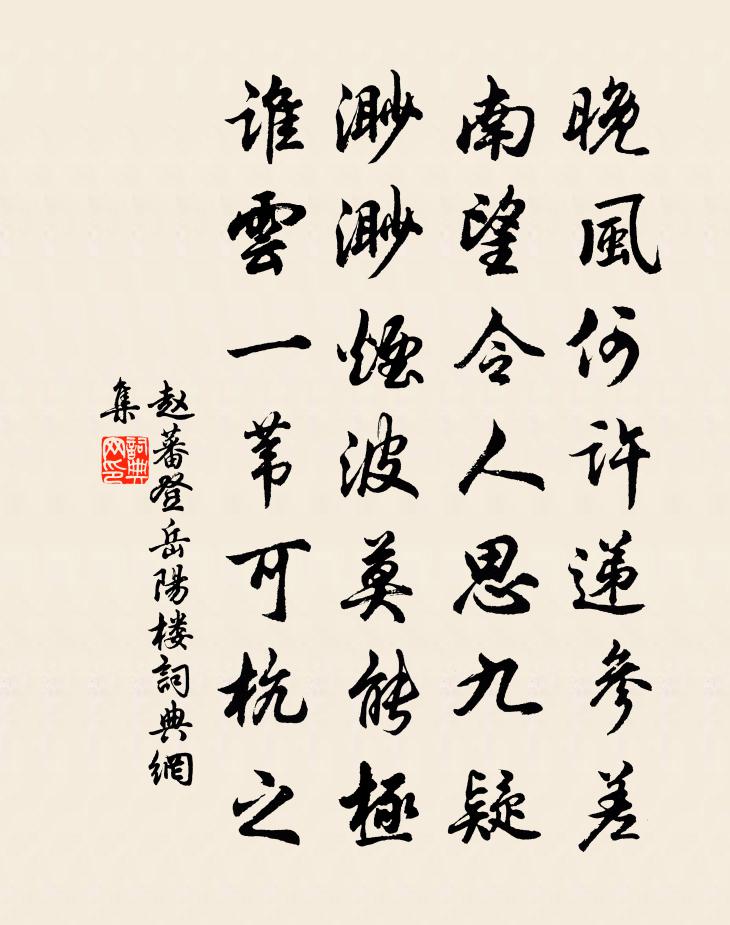 晚風何許递參差
南望令人思九疑
渺渺煙波莫能極
谁雲一苇可杭之
赵蕃登岳陽楼詞典網
集
詞典网印